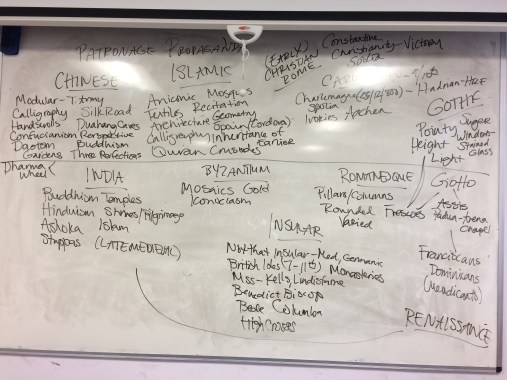 PATRONAGE PROPAGANDA
(EARLY) CHRISTIAN ROME
Constantine
Christianity - Victory
Spolia
CHINESE
Modular - T. Army
Calligraphy Silk Road
Handscrolls Dunhuang Caves
Confucianism Perspective
Daoism Buddhism
Gardens Three Perfections
Dharma Wheel
ISLAMIC
Aniconic Mosques
Textiles Recitation
Architecture Geometry
Spain (Cordoba)
Calligraphy Inheritance of earlier
Quran Crusades
Charlemagne (25/12/800)
Hadrian - HRE
Spolia
Ivories Aachen
GOTHIC
Pointy Sugar
Height Windows - Stained Glass
Light
INDIA
Buddhism Temples
Hinduism Shrines/Pilgrimage
Ashoka Islam
Stuppas
(LATE MEDIEVAL)
BYZANTIUM
Mosaics Gold
Iconoclasm
ROMANESQUE
Pillars/Columns
Rounded
Varied
Frescoes
GIOTTO
Assisi
Padua - Arena Chapel
Franciscans
Dominicans
(Mendicants)
INSULAR
Not that Insular - Med, Germanic
British Isles (7-11th) Monasteries
Mss - Kells, Lindisfarne
Benedict Biscop
Bede Columba
High Crosses
RENAISSANCE